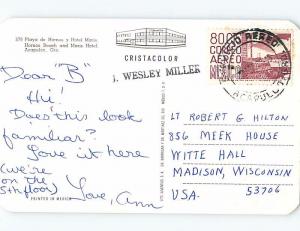 378 Playa de Hornos y Hotel Maris
Hornos Beach and Maris Hotel
Acapulco, Gro.
CRISTACOLOR
J. WESLEY MILLER
80
CORREO
AEREO
MEXICO
Dear "B"
Hi!
Does this look
familiar?
Love it here
(we're
on the
5th floor)
Love, Ann
LT ROBERT G HILTON
856 MEEK HOUSE
WITTE HALL
MADISON, WISCONSIN
53706
USA.
PRINTED IN MEXICO